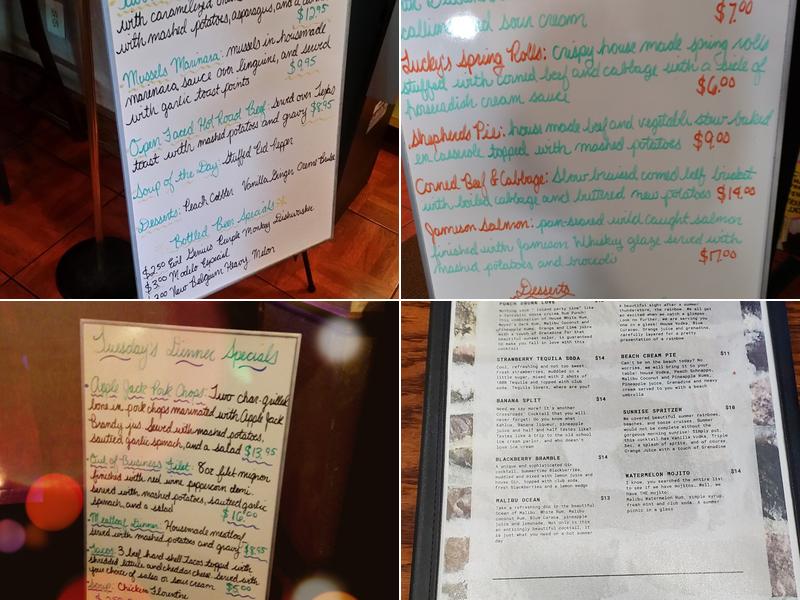 with caramelized
with mashed potatoes, asparagus, and a
$12.95
Mussels Marinara: mussels in housemade
marinara sauce over linguine, and served
with garlic toast points $9.95
Open Faced Hot Roast Beef: served over Texas
toast with mashed potatoes and gravy $8.95
Soup of the Day: Stuffed
Desserts: Peach Cobbler Vanilla Ginger Creme Brulee
Bottled Beer Specials
$2.50 Evil Genius Purple Monkey Dishwasher
$3.00 Modelo Especial
New Belgium Heavy Melon
$7.00
and sour cream
Lucky's Spring Rolls: crispy house made spring rolls
stuffed with corned beef and cabbage with a side of
horseradish cream sauce $6.00
Shepherds Pie: house made beef and vegetable stew baked
en casserole topped with mashed potatoes $9.00
Corned Beef & Cabbage: Slow braised corned beef brisket
with boiled cabbage and buttered new potatoes $14.00
Jameson Salmon: pan-seared wild caught salmon
finished with Jameson Whiskey glaze served with
mashed potatoes and broccoli $17.00
Desserts
Tuesday's Dinner Specials
Apple Jack Pork Chops: Two char-grilled
bone in pork chops marinated with Apple Jack
Brandy jus served with mashed potatoes,
sautéed garlic spinach, and a salad $13.95
Out of Business Filet: 8oz filet mignon
finished with red wine peppercorn demi
served with mashed potatoes, sautéed garlic
spinach, and a salad $16.00
Meatloaf Dinner: Housemade meatloaf
served with mashed potatoes and gravy $8.95
Tacos: 3 beef hard shell Tacos topped with
shredded lettuce and cheddar cheese. Served with
your choice of salsa or sour cream $5.00
Soup: Chicken Florentine
PUNCH DRUNK LOVE $14
STRAWBERRY TEQUILA SODA $14
Cool, refreshing and not too sweet
strawberries, muddled in a
little sugar, mixed with 2 shots of
Tequila and topped with club
soda. Tequila lovers, where are you?
BANANA SPLIT $14
Need we say more? It's another
Cocktail that you will
never forget! We have some
Kahlua, Banana liqueur, pineapple
juice and half and half
Tastes like a trip to the old school
ice cream parlor, and who doesn't
love ice cream
BLACKBERRY BRAMBLE $14
A unique and sophisticated Gin
cocktail. Summertime Blackberries
muddled and mixed with lemon juice and
house Gin, topped with club soda,
fresh blackberries and a lemon wedge
MALIBU OCEAN $13
Take a refreshing dip in the beautiful
Ocean of Malibu. White Rum, Malibu
coconut Rum, Blue Curaco, pineapple
juice and lemonade. Not only is this
an enticingly beautiful cocktail, it
is just what you need on a hot summer
day
beautiful sight after a summer
thunderstorm, the rainbow. We all get
so excited when we catch a glimpse.
Look no further, we are serving you
one in a glass! House Vodka, Blue
Curacao, Orange juice and grenadine,
carefully layered for a pretty
presentation of a rainbow
BEACH CREAM PIE $11
Can't be on the beach today? No
worries, we will bring it to your
House Vodka, Peach Schnapps,
Malibu Coconut and Pineapple Rums,
Pineapple juice, Grenadine and Heavy
cream served to you with a beach
umbrella
SUNRISE SPRITZER $10
We covered beautiful summer rainbows,
beaches, and booze cruises. Summer
would not be complete without the
gorgeous morning sunrise! Simply put,
this cocktail has Vanilla Vodka, Triple
Sec, a splash of sprite, and of course
Orange Juice with a touch of Grenadine
WATERMELON MOJITO $14
I know, you searched the entire list
to see if we have mojitos. Well, we
HAVE THE mojito:
Malibu Watermelon Rum, simple syrup,
fresh mint and club soda. A summer
picnic in a glass